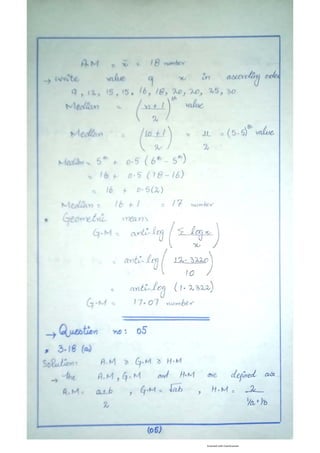 A.M = x̄ = 18 number
→ write value of x in ascending order
9, 12, 15, 15, 16, 18, 20, 20, 25, 30
Median = (n+1/2)th value
Median = (10+1/2) = 11/2 = (5.5)th value
Median = 5th + 0.5 (6th - 5th)
= 16 + 0.5 (18-16)
= 16 + 0.5(2)
Median = 16 + 1 = 17 number
* Geometric mean
G.M = anti-log (Σ log x / x)
= anti-log (12.3220 / 10)
= anti-log (1.2322)
G.M = 17.07 number
→ Question no: 05
* 3.18 (a)
Solution: A.M ≥ G.M ≥ H.M
→ the A.M, G.M and H.M are defined as
A.M = a+b/2 , G.M = √ab , H.M = 2/1/a+1/b
(05)
Scanned with CamScanner